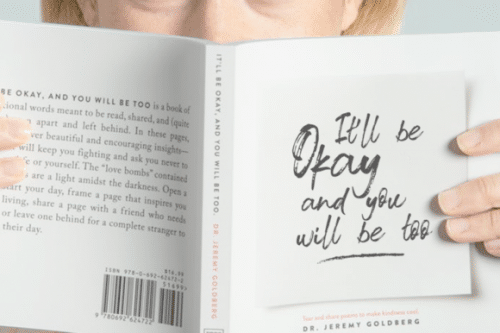 BE OKAY, AND YOU WILL BE TOO is a book of
tional words meant to be read, shared, and (quite
apart and left behind. In these pages,
ver beautiful and encouraging insights—
will keep you fighting and ask you never to
fe or yourself. The “love bombs” contained
are a light amidst the darkness. Open a
start your day, frame a page that inspires you
living, share a page with a friend who needs
or leave one behind for a complete stranger to
their day.
ISBN 978-0-692-62472-2
$16.99
9 780692 624722
IT'LL BE OKAY, AND YOU WILL BE TOO. DR. JEREMY GOLDBERG
It'll be
Okay
and you
will be too
DR. JEREMY GOLDBERG